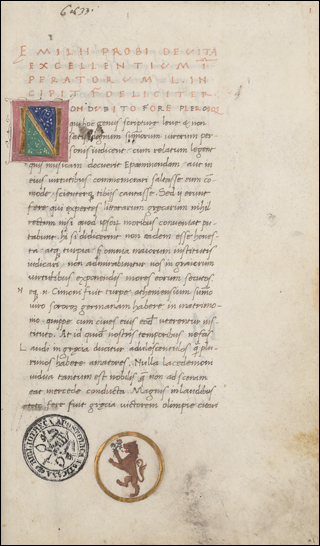 EMILII PROBI DE VITA
EXCELLENTIUM I
PERATORUM LIN
CIPIT FOELICITER
ON DUBITO FORE PLEROSQ
hoc genus scripture leue & non
satis personis summorum uirorum
iudicent cum relatum legent
quis musicam docuerit Epaminundam aut in
eius uirtutibus commemorari saltasse eum com
mode scienterq tibiis cantasse Sed ii erunt
fere qui expertes litterarum grecarum nihil
rectum nisi quod ipsorum moribus conueniat pu
tabunt hi si didicerint non eadem esse hones
ta atq turpia omnia maiorum institutis
iudicari non admirabuntur nos in graiorum
uirtutibus exponendis mores eorum secutos
N
eq n Cimoni fuit turpe atheniensium summo
uiro sororem germanam habere in matrimo
nio quippe cum ciues eius uterentur ins
tituto At id nostris temporibus nefas
L
audi in grecia ducitur adulescentulis q plu
rimos habere amatores Nulla Lacedemoni
uidua tam est nobilis q non ad scenam
eat mercede conducta Magnis in laudibus
fere fuit grecia uictorem olimpie citari
BIBLIOTHECA APOSTOLICA VATICANA